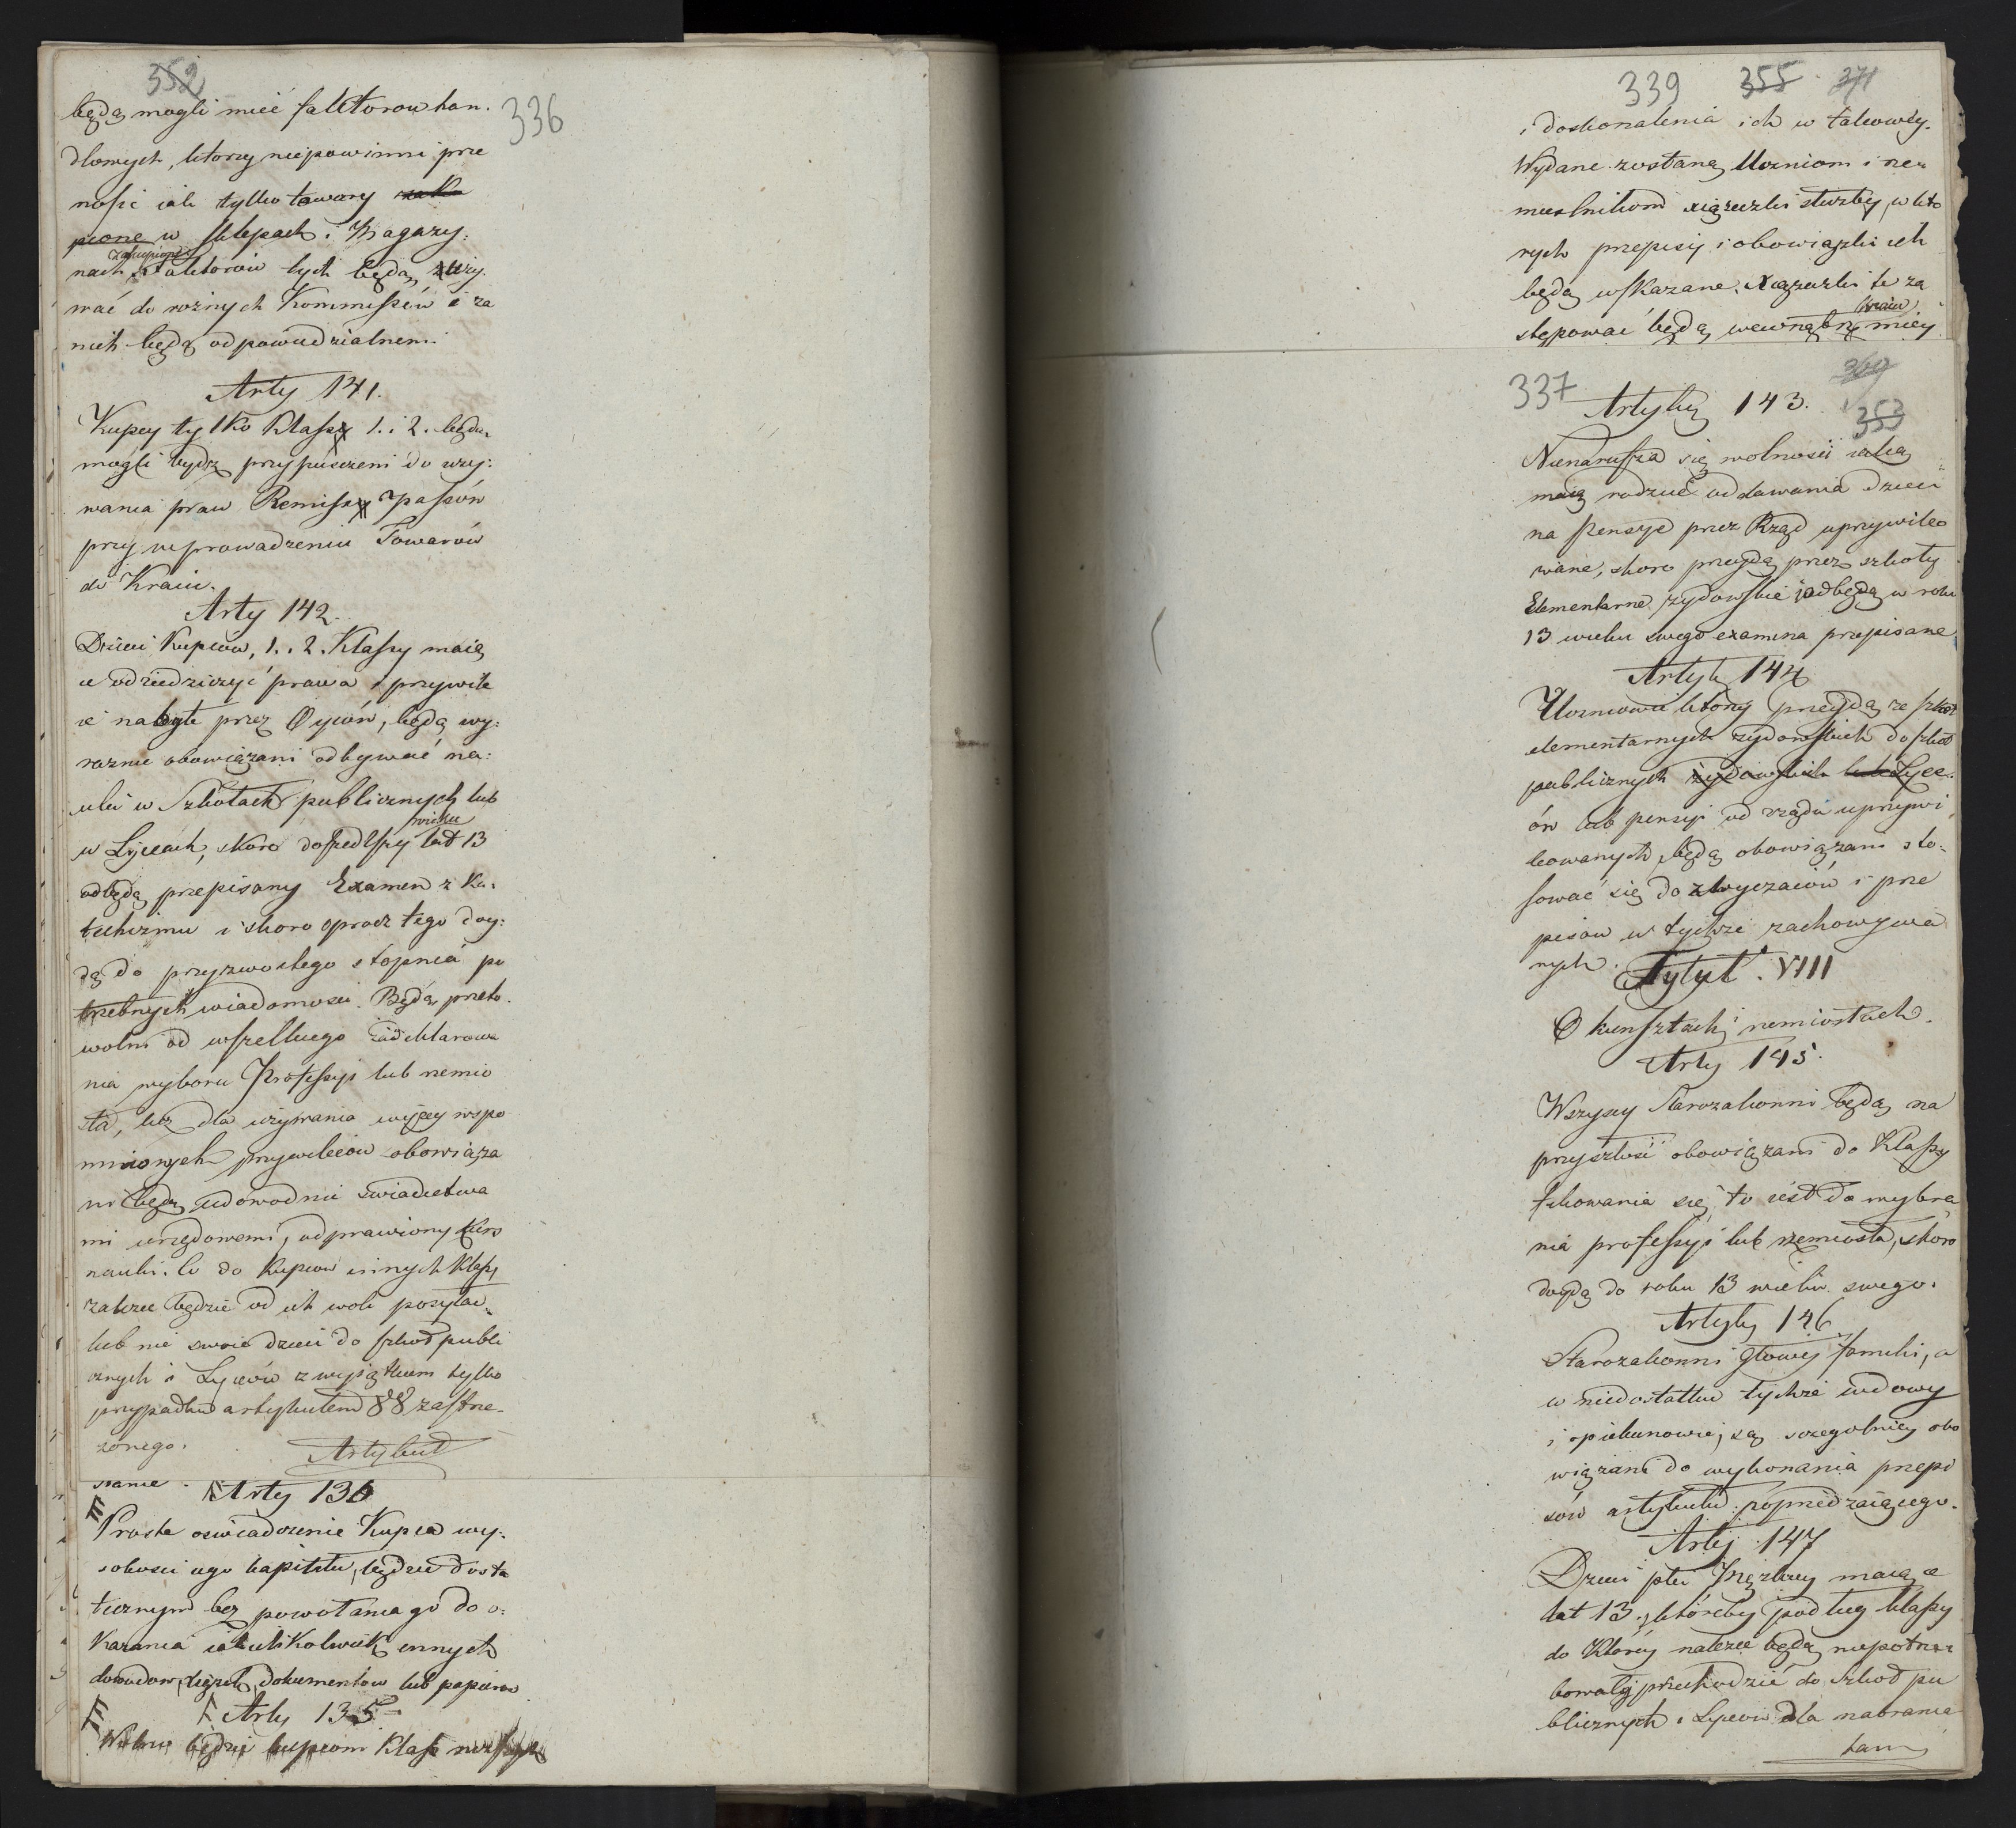 352
336
będą mogli mieć faktorow han.
dlowych, ktorzy niepowinni prze
nosić iak tylko towary zaku
pione w sklepach i Magazy:
zakupione
nach, Faktorów tych będą uży.
wać do roznych Kommissów i za
nich będą odpowiedzialnemi.
Arty 141.
Kupcy tylko Klassy 1. i 2. będą
mogli bydz przypuszczeni do uzy:
wania praw Remissy i passów
przy wprowadzeniu Towarów
do Kraiu.
Arty 142.
Dzieci Kupcow, 1. i 2. Klassy maią
ce odziedziczyć prawa i przywile
ie nabyte przez Oyców, będą wy:
raznie obowiązani odbywać na:
uki w Szkołach publicznych lub
wieku
w Lyceach, skoro doszedłszy lat 13
odbędą przepisany Examen z Ka.
techizmu i skoro oprocz tego doy:
dą do przyzwoitego stopnia po
trzebnych wiadomosci. Będą przeto
wolni od wszelkiego zadeklarowa
nia wyboru Professyi lub rzemio
sła, lecz dla używania wyzey wspo
mnionych przywileiow obowiąza
ni będą udowodnić swiadectwa
mi urzędowemi, odprawiony kurs
nauki. Co do Kupcow innych Klass
zalezeć będzie od ich woli posyłać
lub nie swoie dzieci do szkoł publi
cznych i Lyceów z wyiątkiem tylko
przypadku artykułem 88 zastrze-
zonego.
Artykuł
stanie.
Arty 136
Proste oswiadczenie Kupca wy:
sokosci iego kapitału, będzie dosta
tecznym bez powołania go do o:
kazania iakichkolwiek innych
dowodow, xiąg, dokumentow lub papierow
Arty 135
Wolno będzie kupcom Klass
339 355 371
i doskonalenia ich w takowey.
Wydane zostaną Uczniom i rze
mieslnikom xiążeczki służby, w kto
rych przepisy i obowiązki ich
będą wskazane. Xiążeczki te za
kraiu
stępować będą wewnątrz miey
337
369
353
Artykuł 143.
Nienarusza się wolności iaką
maią rodzice oddawania dzieci
na Pensye przez Rząd uprzywileo
wane, skoro przeydą przez szkoły
Elementarne zydowskie i odbędą w roku
13 wieku swego examina przepisane
Artyk 144
Uczniowie ktorzy przeydą ze szkoł
elementarnych zydowskich do szkoł
publicznych żydowskich lub Lyce.
ów lub pensyi od rządu uprzywi
leowanych będą obowiązani sto:
sować się do zwyczaiów i prze
pisow w tychze zachowywa
nych.
Tytuł. VIII
O kunsztach i rzemiosłach.
Arty 145.
Wszyscy Starozakonni będą na
przyszłość obowiązani do Klassy
fikowania się, to iest do wybra
nia professyi lub rzemiosła, skoro
doydą do roku 13 wieku swego.
Artyky 146
Starozakonni głowy familii, a
w niedostatku tychze wdowy
i opiekunowie, są szczegolniey obo
wiązani do wykonania przepi
sów artykułu poprzedzaiącego.
Arty 147
Dzieci płci Męzkiey maiące
lat 13., któreby podług klassy
do Któréy nalezeć będą niepotrze
bowały przechodzić do Szkoł pu
blicznych i Lyceow dla nabrania
tam